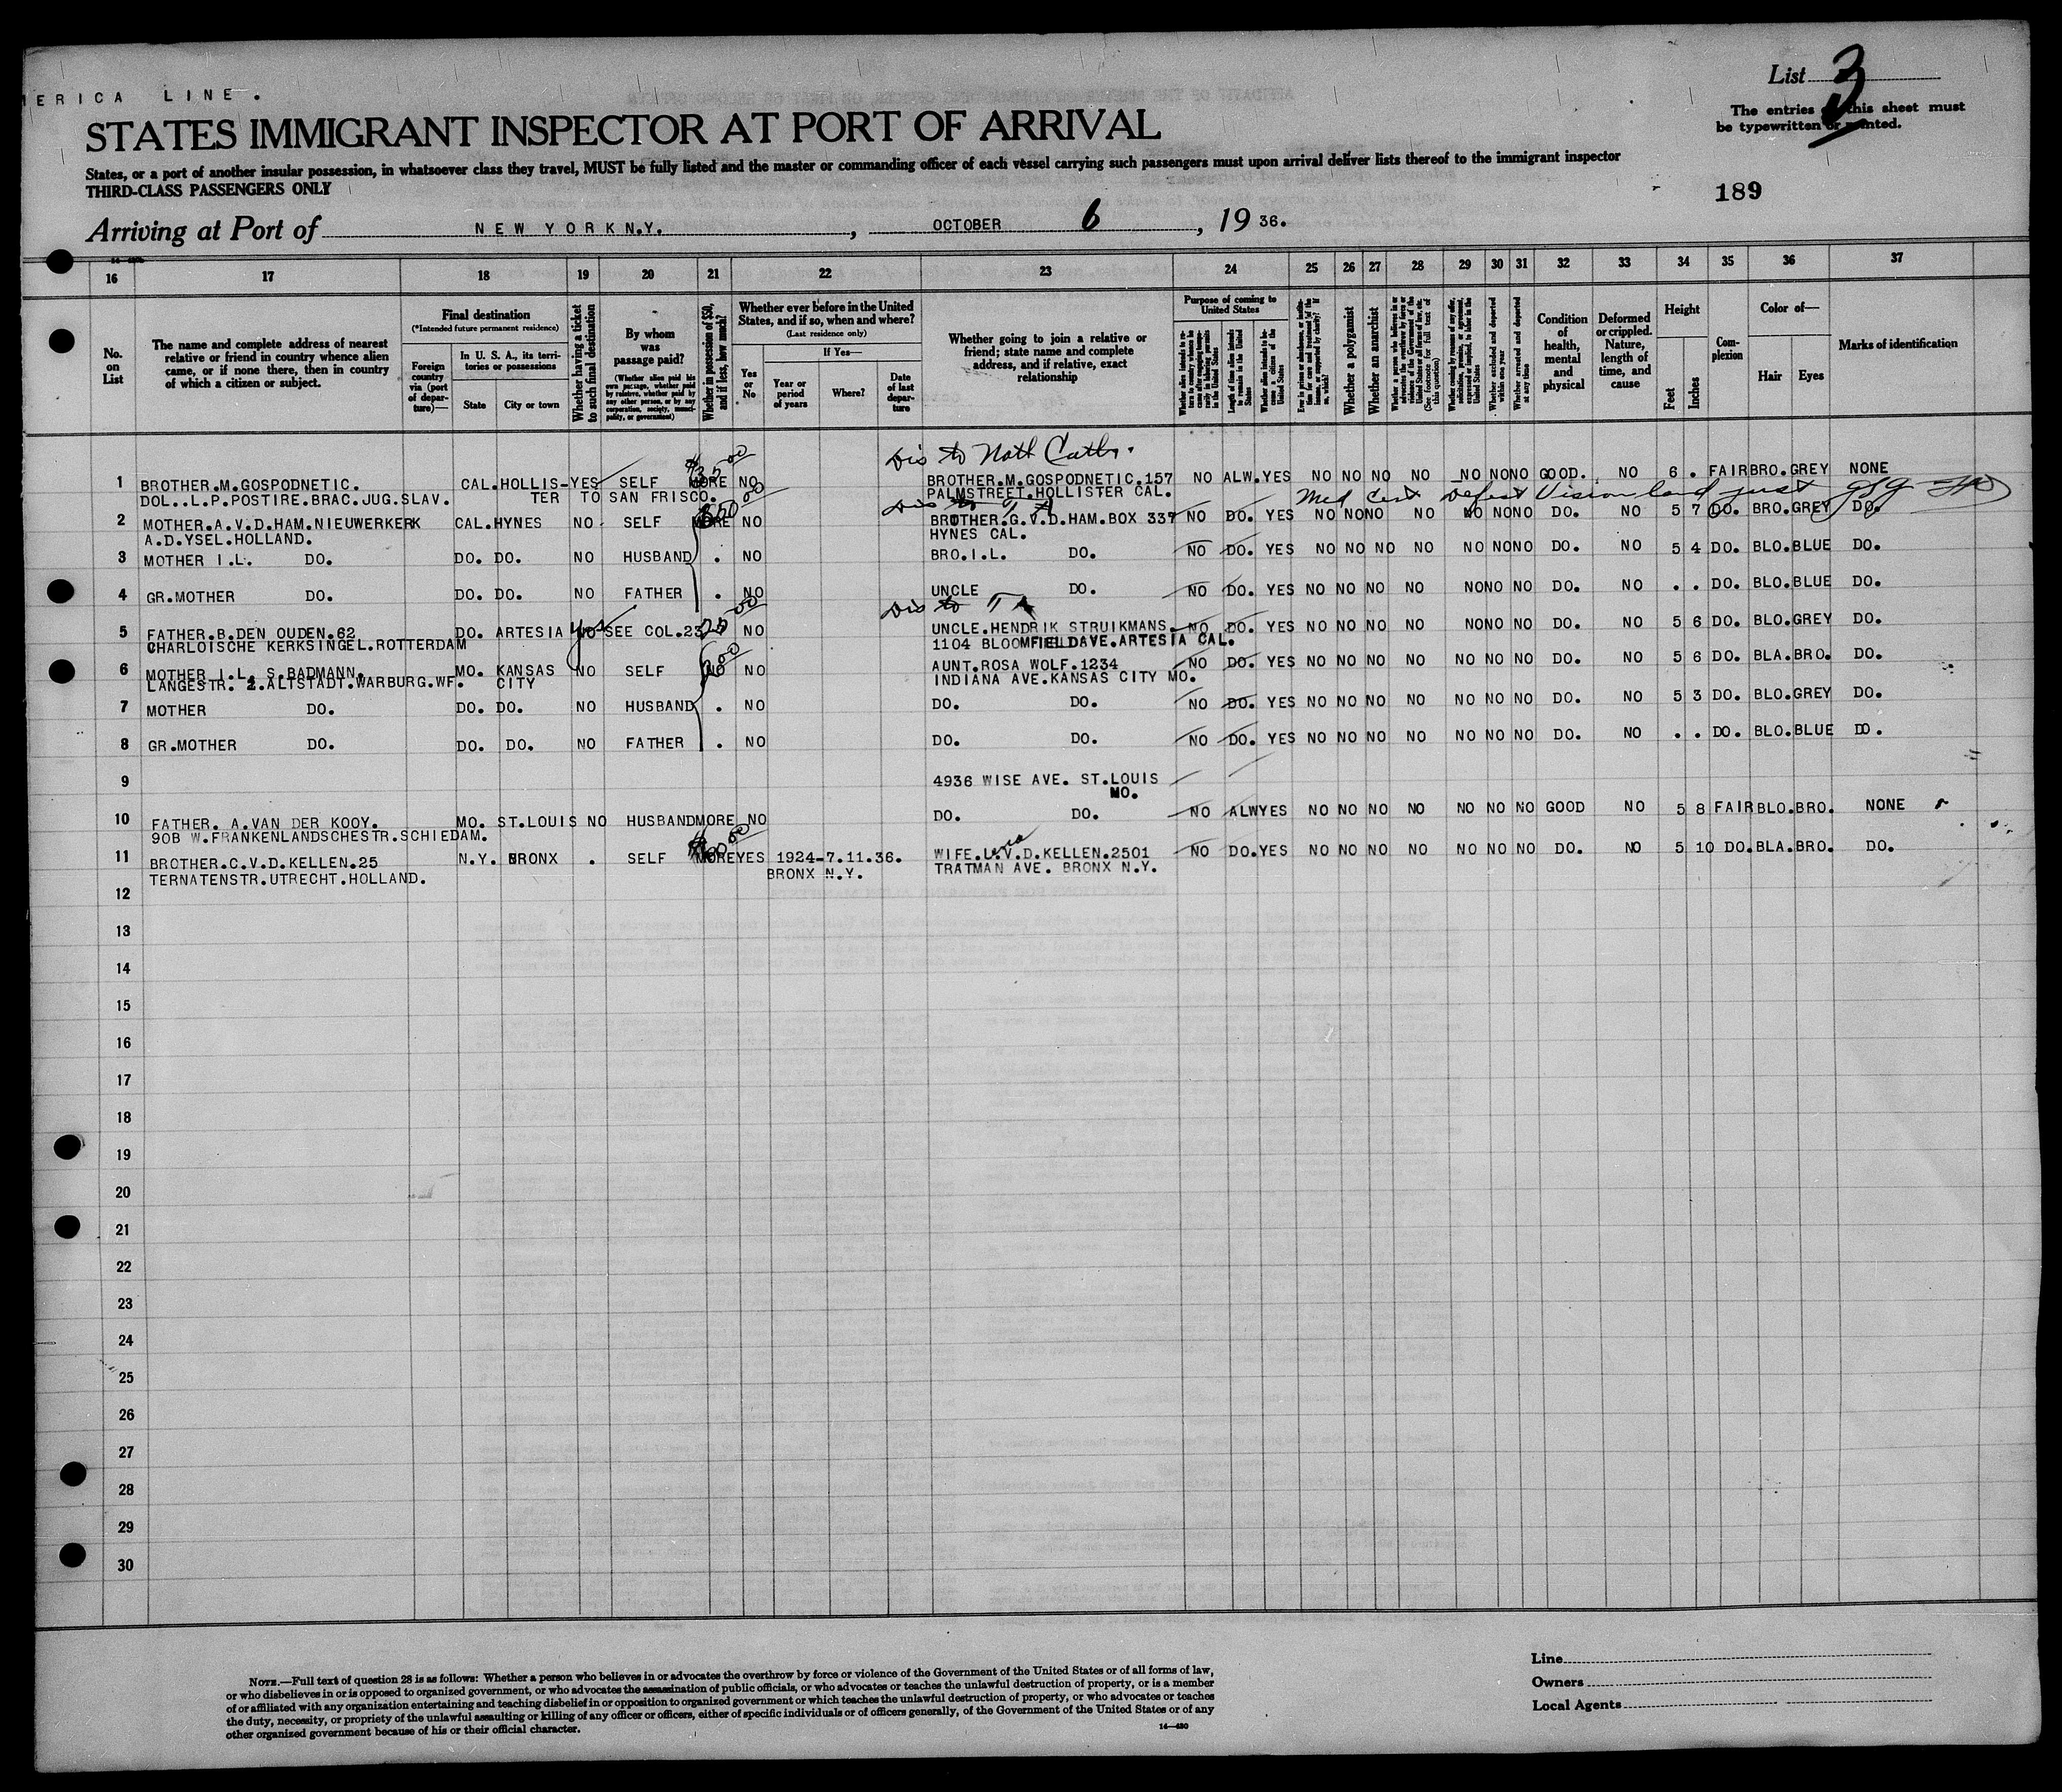 ERICA LINE.
List 3
The entries this sheet must
be typewritten or printed.
STATES IMMIGRANT INSPECTOR AT PORT OF ARRIVAL
States, or a port of another insular possession, in whatsoever class they travel, MUST be fully listed and the master or commanding officer of each vessel carrying such passengers must upon arrival deliver lists thereof to the immigrant inspector
THIRD-CLASS PASSENGERS ONLY
189
Arriving at Port of NEW YORK N.Y., OCTOBER 6, 19 36.
16 17 18 19 20 21 22 23 24 25 26 27 28 29 30 31 32 33 34 35 36 37
No. on List
The name and complete address of nearest relative or friend in country whence alien came, or if none there, then in country of which a citizen or subject.
Final destination
(*Intended future permanent residence)
Foreign country via (port of departure)—
In U. S. A., its territories or possessions
State
City or town
Whether having a ticket to such final destination
By whom was passage paid?
(Whether alien paid his own passage, whether paid by relative, whether paid by any other person, or by any corporation, society, municipality, or government)
Whether in possession of $50, and if less, how much?
Whether ever before in the United States, and if so, when and where?
(Last residence only)
Yes or No
If Yes—
Year or period of years
Where?
Date of last departure
Whether going to join a relative or friend; state name and complete address, and if relative, exact relationship
Purpose of coming to United States
Length of time alien intends to remain in the United States
Whether alien intends to become a citizen of the United States
Whether a polygamist
Whether an anarchist
Whether excluded and deported within one year
Whether arrested and deported at any time
Condition of health, mental and physical
Deformed or crippled. Nature, length of time, and cause
Height
Feet
Inches
Complexion
Color of—
Hair
Eyes
Marks of identification
Dis to
$35.00
1 BROTHER.M.GOSPODNETIC. CAL.HOLLIS- YES SELF MORE NO BROTHER.M.GOSPODNETIC.157 NO ALW.YES NO NO NO NO NO NO NO GOOD. NO 6 . FAIR BRO.GREY NONE
DOL..L.P.POSTIRE.BRAC.JUG.SLAV. TER TO SAN FRISCO. PALMSTREET.HOLLISTER CAL.
Dis to Med Cert Defect Vision
2 MOTHER.A.V.D.HAM.NIEUWERKERK CAL.HYNES NO SELF MORE NO BROTHER.G.V.D.HAM.BOX 337 NO DO. YES NO NO NO NO NO NO NO DO. NO 5 7 DO. BRO.GREY DO.
A.D.YSEL.HOLLAND. HYNES CAL.
3 MOTHER I.L. DO. DO. DO. NO HUSBAND . NO BRO.I.L. DO. NO DO. YES NO NO NO NO NO NO NO DO. NO 5 4 DO. BLO.BLUE DO.
4 GR.MOTHER DO. DO. DO. NO FATHER . NO UNCLE DO. NO DO. YES NO NO NO NO NO NO NO DO. NO . . DO. BLO.BLUE DO.
Dis to
5 FATHER.B.DEN OUDEN.62 DO. ARTESIA NO yes SEE COL.23 NO UNCLE.HENDRIK STRUIKMANS. NO DO. YES NO NO NO NO NO NO NO DO. NO 5 6 DO. BLO.GREY DO.
CHARLOISCHE KERKSINGEL.ROTTERDAM 1104 BLOOMFIELDAVE.ARTESIA CAL.
6 MOTHER I.L. S.BADMANN. MO. KANSAS NO SELF NO NO AUNT.ROSA WOLF.1234 NO DO. YES NO NO NO NO NO NO NO DO. NO 5 6 DO. BLA.BRO. DO.
LANGESTR. 2.ALTSTADT.WARBURG.WF. CITY INDIANA AVE.KANSAS CITY MO.
7 MOTHER DO. DO. DO. NO HUSBAND . NO DO. DO. NO DO. YES NO NO NO NO NO NO NO DO. NO 5 3 DO. BLO.GREY DO.
8 GR.MOTHER DO. DO. DO. NO FATHER . NO DO. DO. NO DO. YES NO NO NO NO NO NO NO DO. NO . . DO. BLO.BLUE DO.
9 4936 WISE AVE. ST.LOUIS
MO.
10 FATHER. A.VAN DER KOOY. MO. ST.LOUIS NO HUSBAND MORE NO DO. DO. NO ALW YES NO NO NO NO NO NO NO GOOD NO 5 8 FAIR BLO.BRO. NONE
90B W.FRANKENLANDSCHESTR.SCHIEDAM.
11 BROTHER.C.V.D.KELLEN.25 N.Y. BRONX . SELF MORE YES 1924-7.11.36. WIFE.L.V.D.KELLEN.2501 NO DO.YES NO NO NO NO NO NO NO DO. NO 5 10 DO.BLA.BRO. DO.
TERNATENSTR.UTRECHT.HOLLAND. BRONX N.Y. TRATMAN AVE. BRONX N.Y.
12
13
14
15
16
17
18
19
20
21
22
23
24
25
26
27
28
29
30
NOTE.—Full text of question 28 is as follows: Whether a person who believes in or advocates the overthrow by force or violence of the Government of the United States or of all forms of law,
or who disbelieves in or is opposed to organized government, or who advocates the assassination of public officials, or who advocates or teaches the unlawful destruction of property, or is a member
of or affiliated with any organization entertaining and teaching disbelief in or opposition to organized government or which teaches the unlawful destruction of property, or who advocates or teaches
the duty, necessity, or propriety of the unlawful assaulting or killing of any officer or officers, either of specific individuals or of officers generally, of the Government of the United States or of any
other organized government because of his or their official character.
14—430
Line
Owners
Local Agents